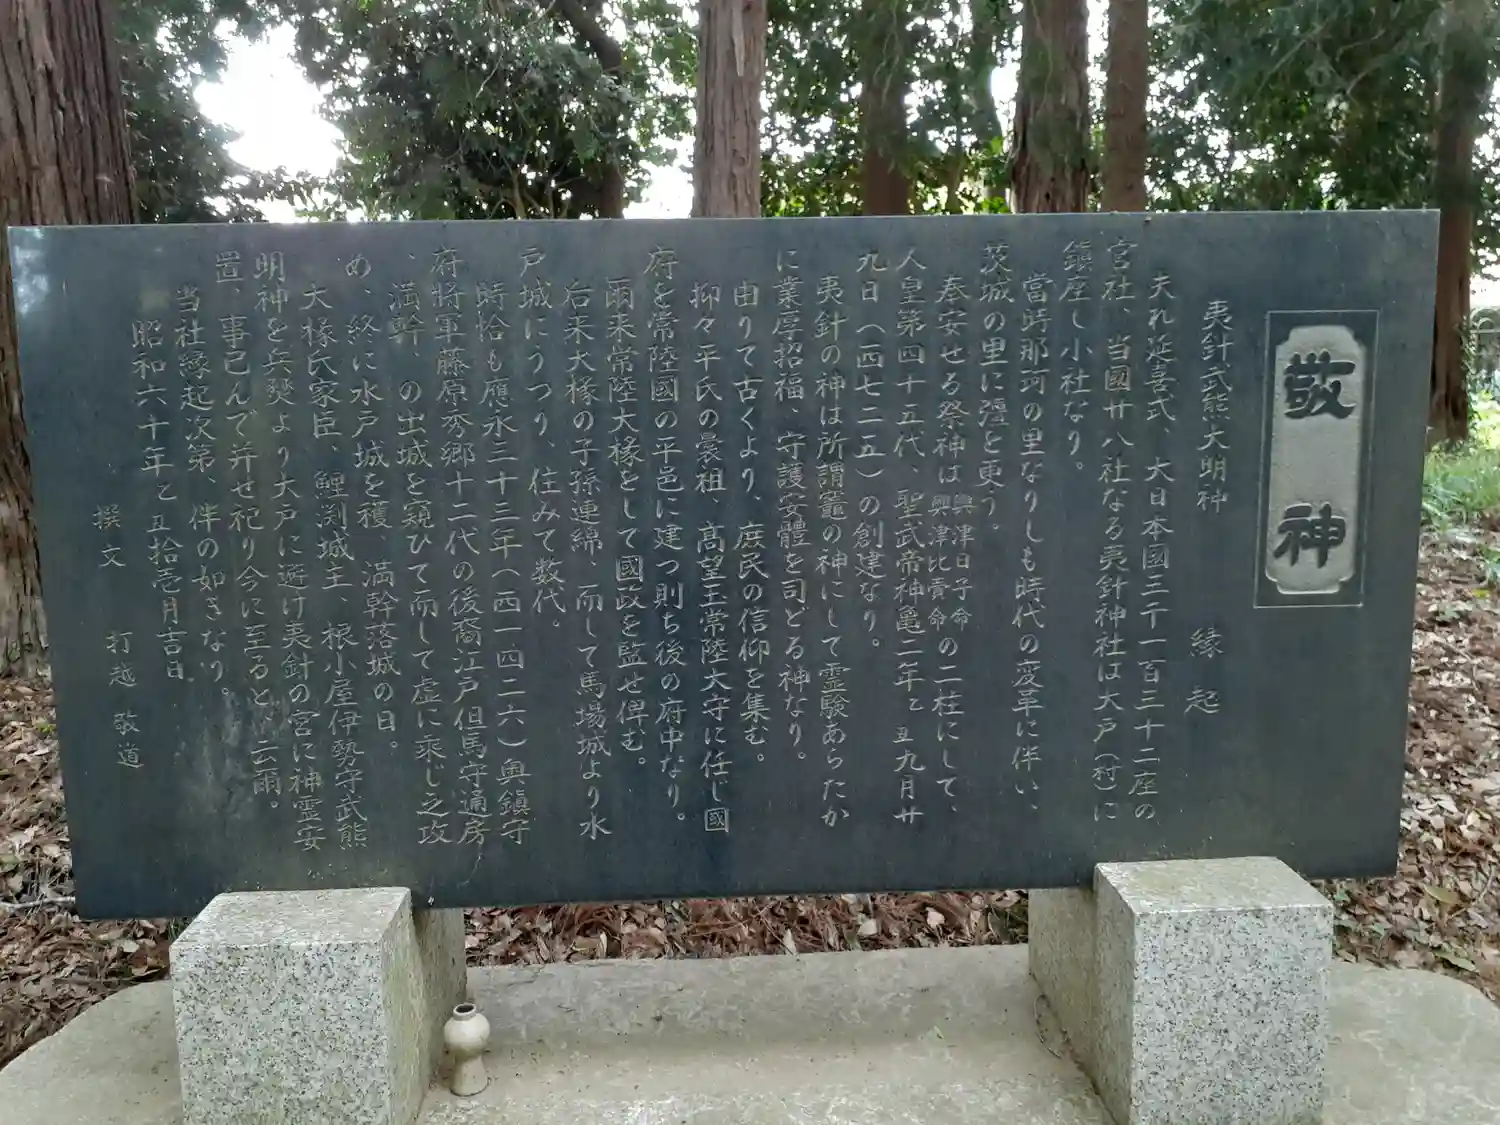 敬神
夷針武熊大明神　縁起
夫れ延喜式、大日本國三千一百三十二座の
宮社、当國廿八社なる夷針神社は大戸（村）に
鎮座し小社なり。
當時那珂の里なりしも時代の変革に伴い、
茨城の里に彊と更う。
奉安せる祭神は奥津日子命 興津比賣命の二柱にして、
人皇第四十五代、聖武帝神亀二年乙丑九月廿
九日（西七二五）の創建なり。
夷針の神は所謂竈の神にして霊験あらたか
に業厚招福、守護安體を司どる神なり。
由りて古くより、庶民の信仰を集む。
抑々平氏の曩祖、髙望王常陸大守に任じ國
府を常陸國の平邑に建つ則ち後の府中なり。
爾来常陸大掾をして國政を監せ俾む。
后来大掾の子孫連綿、而して馬場城より水
戸城にうつり、住みて数代。
時恰も應永三十三年（西一四二六）奥鎮守
府將軍藤原秀郷十二代の後裔江戸但馬守通房
、満幹、の出城を窺ひて而して虚に乘じ之攻
め、終に水戸城を穫、満幹落城の日。
大掾氏家臣、鯉渕城主、根小屋伊勢守武熊
明神を兵燹より大戸に避け夷針の宮に神霊安
置、事已んで并せ祀り今に至ると云爾。
当社縁起次第、件の如きなり。
昭和六十年乙丑拾壱月吉日
撰文　打越敬道